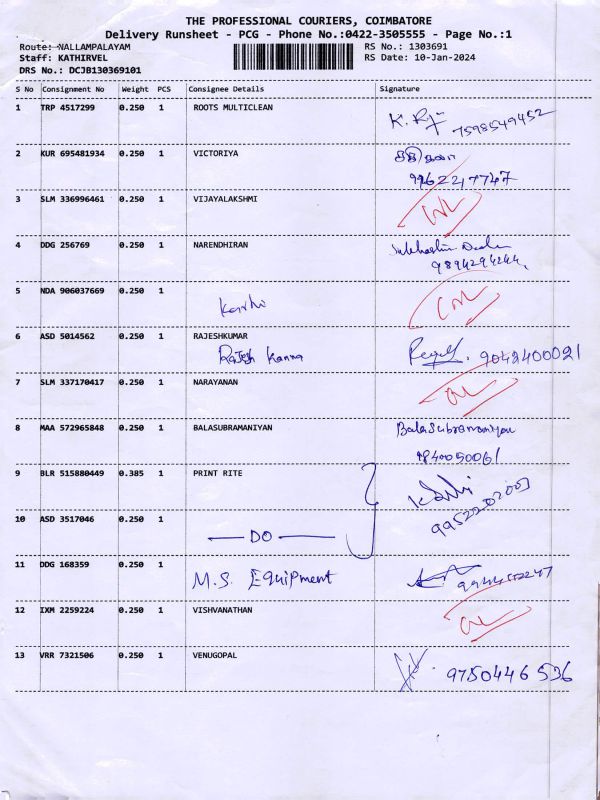 THE PROFESSIONAL COURIERS, COIMBATORE
Delivery Runsheet - PCG - Phone No.:0422-3505555 - Page No.:1
Route: NALLAMPALAYAM RS No.: 1303691
Staff: KATHIRVEL RS Date: 10-Jan-2024
DRS No.: DCJB130369101
S No Consignment No Weight PCS Consignee Details Signature
1 TRP 4517299 0.250 1 ROOTS MULTICLEAN
7598549452
2 KUR 695481934 0.250 1 VICTORIYA
3 SLM 336996461 0.250 1 VIJAYALAKSHMI
4 DDG 256769 0.250 1 NARENDHIRAN
9894294244
5 NDA 906037669 0.250 1
6 ASD 5014562 0.250 1 RAJESHKUMAR
Rajesh Kanna 9042400021
7 SLM 337170417 0.250 1 NARAYANAN
8 MAA 572965848 0.250 1 BALASUBRAMANIYAN Balasubramaniyan
9840050061
9 BLR 515880449 0.385 1 PRINT RITE
10 ASD 3517046 0.250 1
DO
11 DDG 168359 0.250 1
M.S. Equipment
12 IXM 2259224 0.250 1 VISHVANATHAN
13 VRR 7321506 0.250 1 VENUGOPAL
9750446536